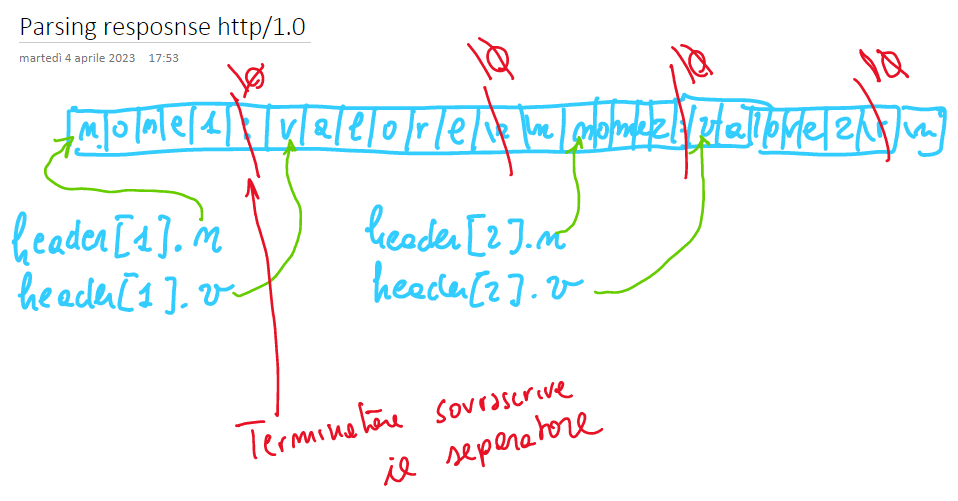 Parsing resposnse http/1.0
martedì 4 aprile 2023 17:53
\0 \0 \0 \0
nome1:valore\r\nnome2:valore2\r\n
header[1].n header[2].n
header[1].v header[2].v
Terminatore sovrascrive
il separatore